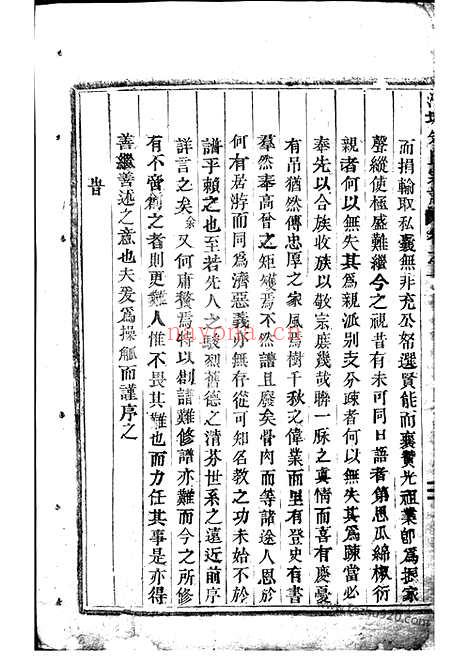 而捐輸取私囊無非充公帑選賢能而襄贊光祖業卽爲振家
聲縱使極盛難繼今之視昔有未可同日語者第思瓜綿椒衍
親者何以無失其爲親派別支分疎者何以無失其爲疎當必
奉先以合族收族以敬宗庶幾哉聯一脉之眞情而喜有慶憂
有吊猶然傳忠厚之家風爲樹千秋之偉業而里有登史有書
羣然奉高曾之矩矱焉不然始且廢矣骨肉而等諸途人恩於
何有居游而同爲濟惡義於無存從可知名教之功未始不於
譜乎賴之也至若先人之駿烈舊德之清芬世系之遠近前譜
詳言之矣余又何庸贅焉特以剏譜難修譜亦難而今之所修
有不啻剏之者則更難人惟不畏其難也而力任其事是亦得
善繼善述之意也夫爰爲操觚而謹序之
旹
nayona.cn